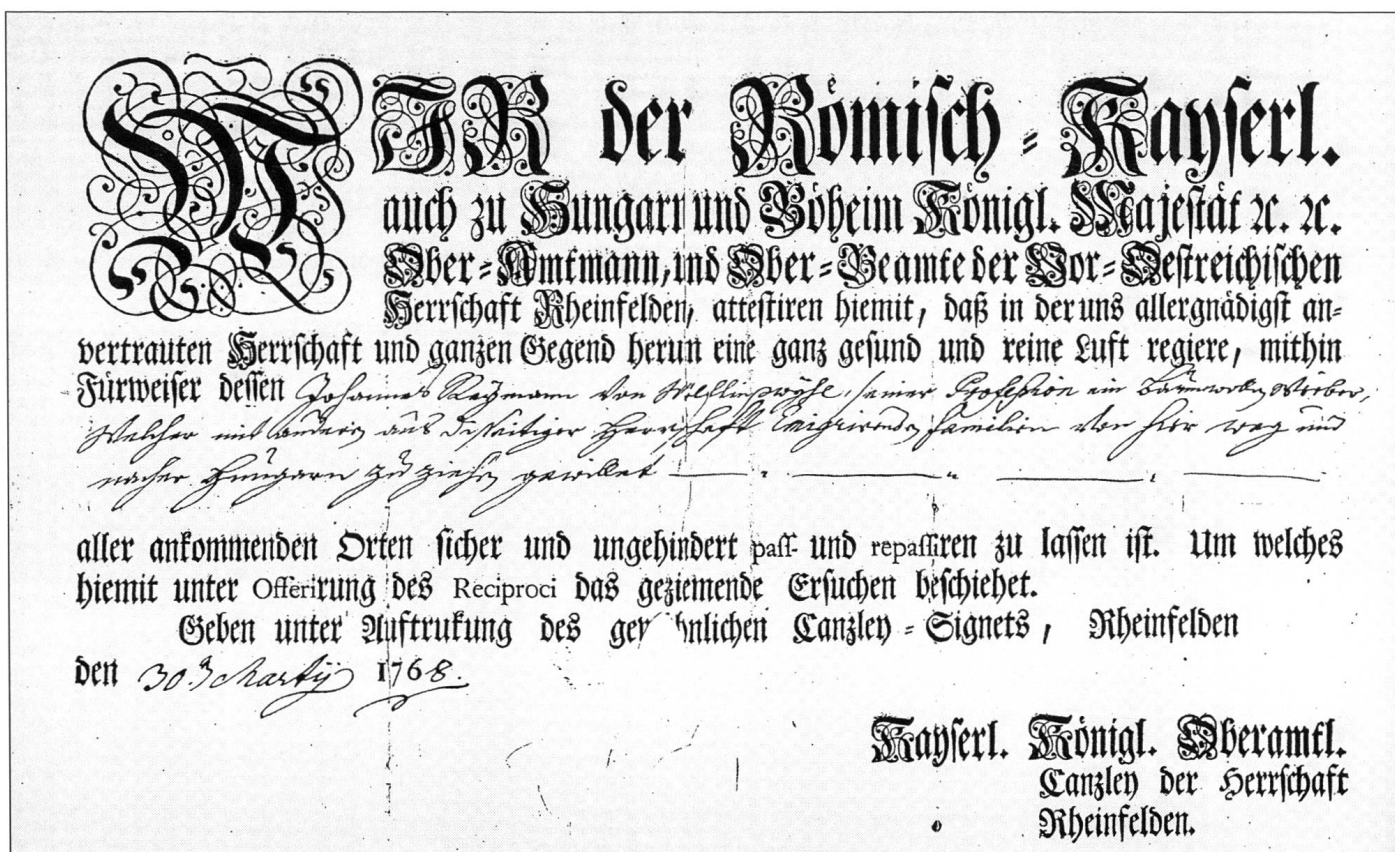 WIR der Römisch-Kayserl.
auch zu Hungarn und Böheim Königl. Majestät ꝛc. ꝛc.
Ober-Amtmann, und Ober-Beamte der Vor-Oestreichischen
Herrschaft Rheinfelden, attestiren hiemit, daß in der uns allergnädigst an-
vertrauten Herrschaft und ganzen Gegend herun eine ganz gesund und reine Luft regiere, mithin
Fürweiser dessen Johannes von Wölflinswyhl, seiner Profession ein Weber,
Welcher mit andern aus disseitiger Herrschaft emigrirenden familien von hier weg und
nacher Hungarn zu ziehen gewillet
aller ankommenden Orten sicher und ungehindert pass- und repassiren zu lassen ist. Um welches
hiemit unter Offerirung des Reciproci das geziemende Ersuchen beschiehet.
Geben unter Auftrukung des gewöhnlichen Canzley-Signets, Rheinfelden
den 30. Martij 1768.
Kayserl. Königl. Oberamtl.
Canzley der Herrschaft
Rheinfelden.